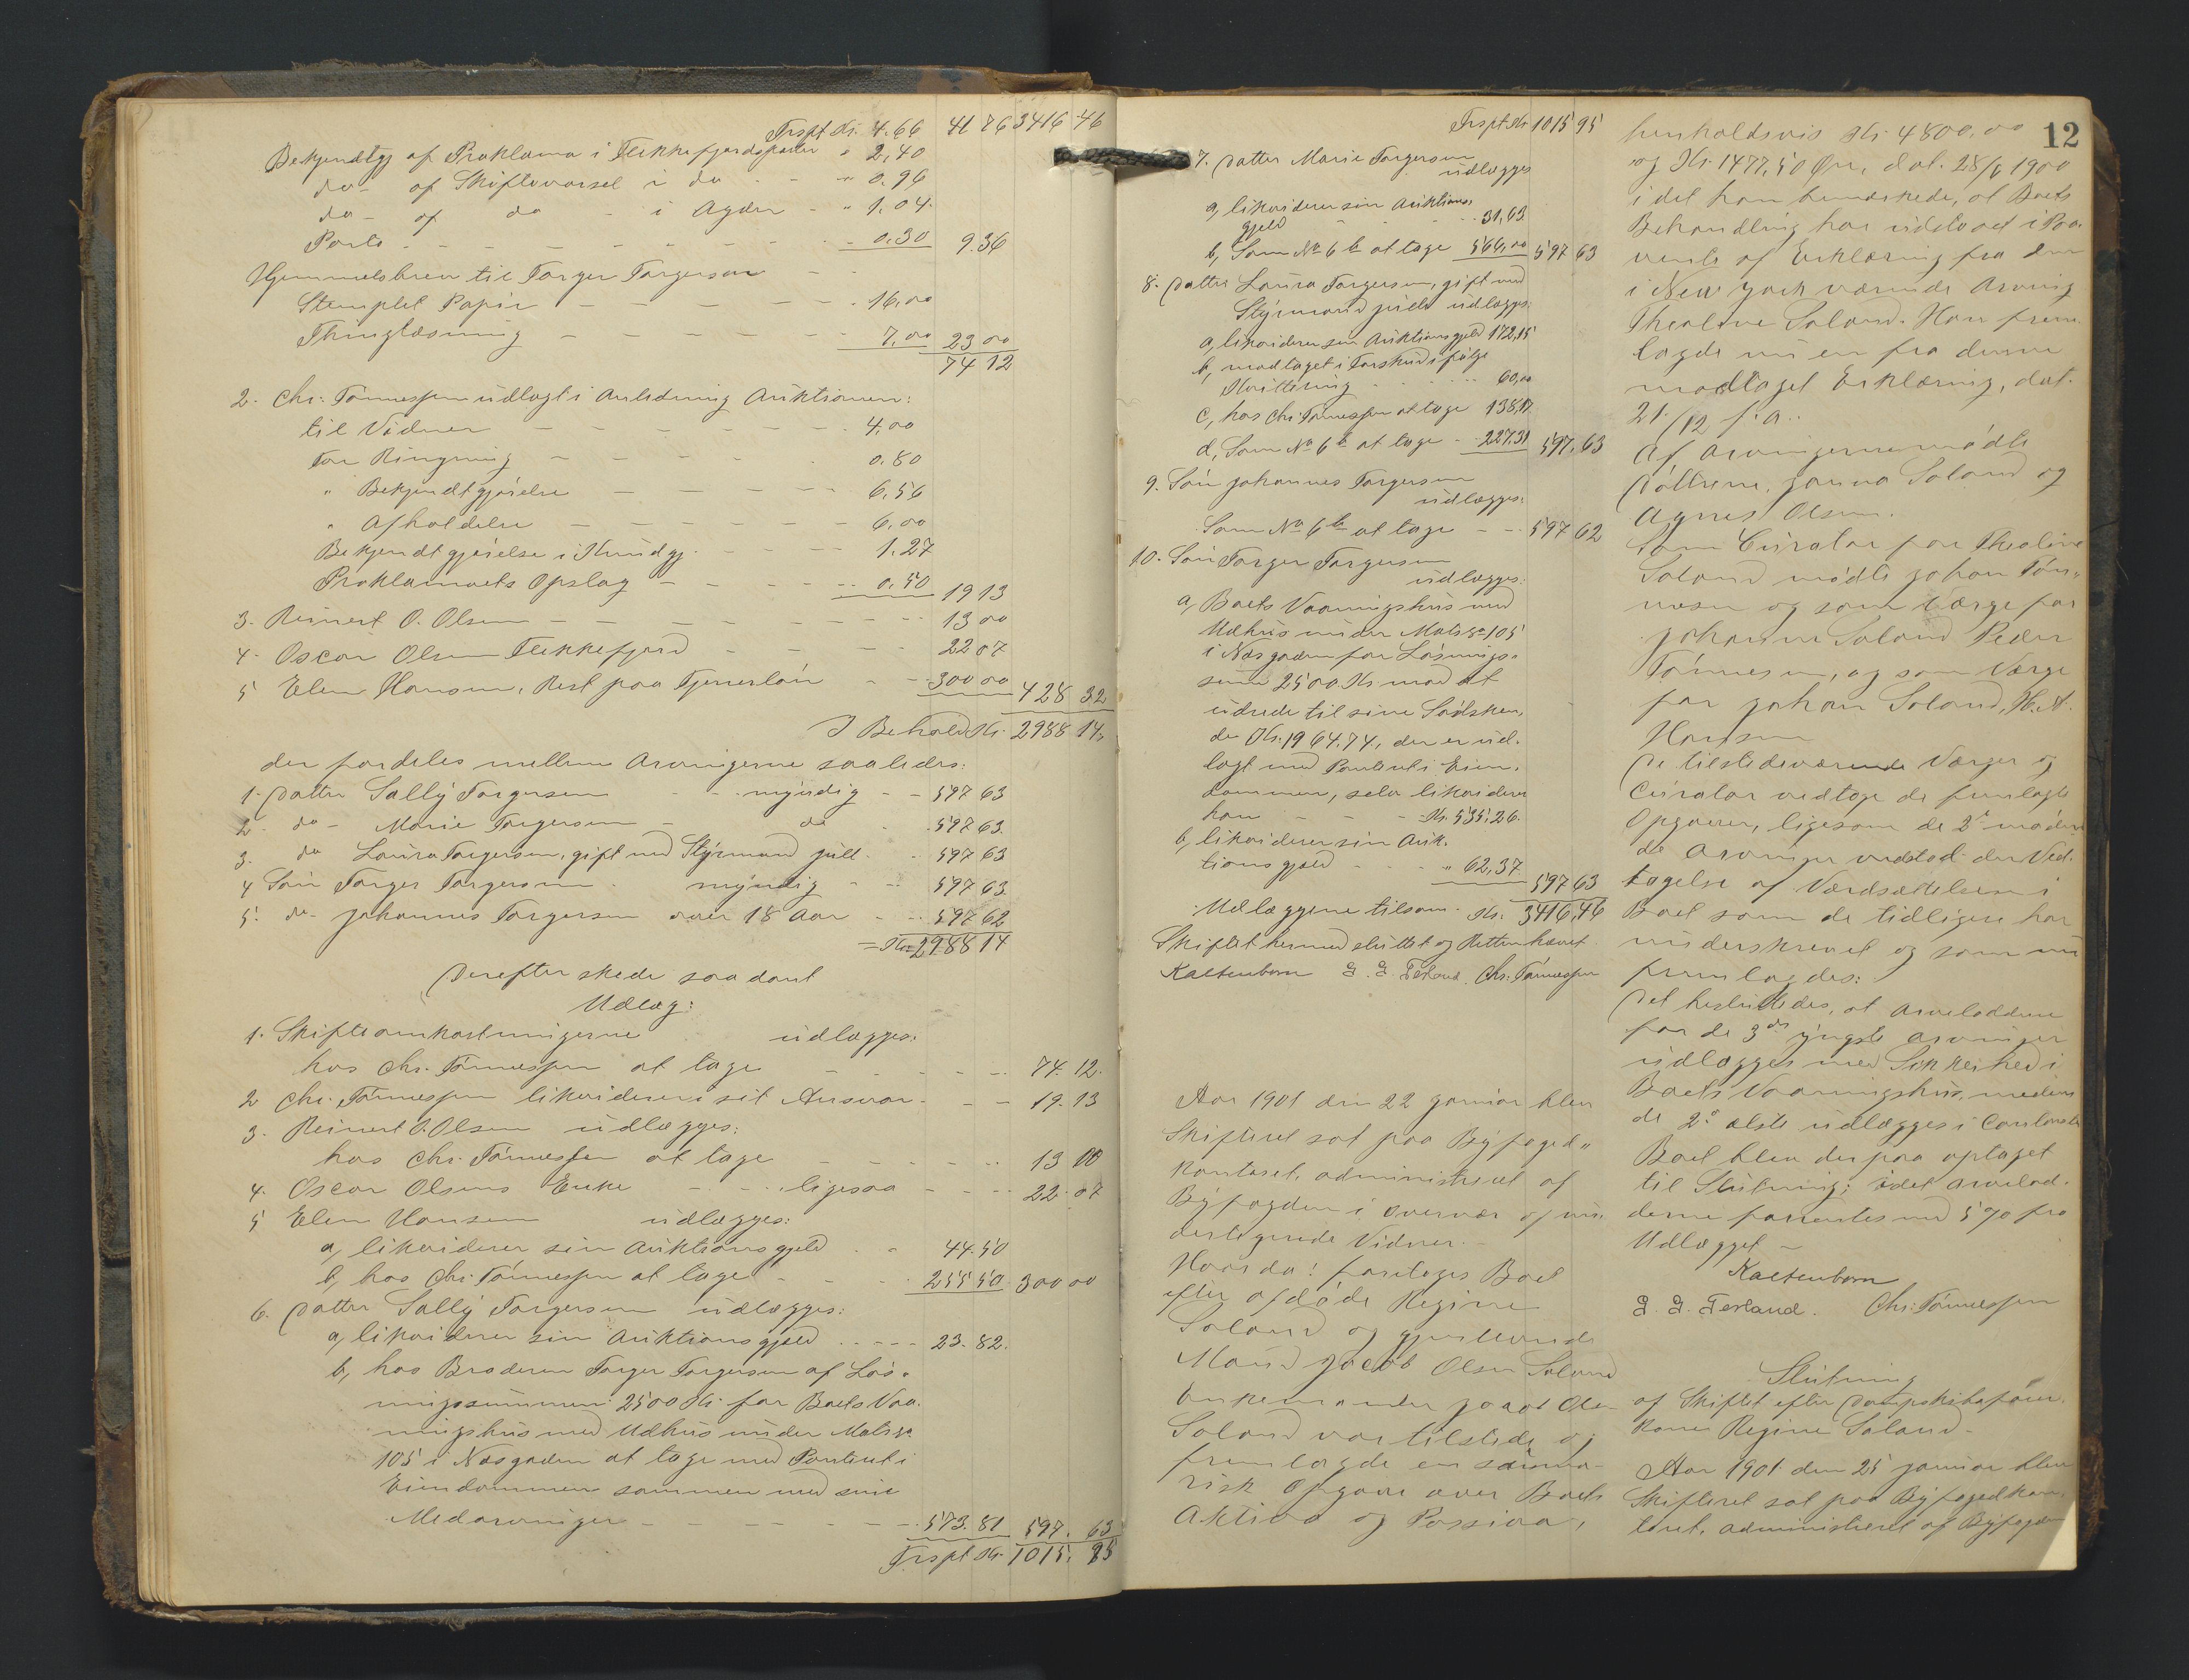 Trspt. Kr. 4.66 41 76 3416 46
Bekjendtgj af Proklama i Flekkefjordsposten " 2,40
do - af Skiftevarsel i do - - " 0.96
do - af do - i Agder - " 1.04.
Porto - - - - - - - - 0.30 9.36
Hjemmelsbrev til Torger Torgersen - -
Stemplet Papir - - - - - 16,00
Thinglæsning - - - - - 7,00 23 00
74 12
2. Chr. Tönnessen udlagt i Anledning Auktionen:
til Vidner - - - - - - 4,00
For Ringning - - - - - 0.80
" Bekjendtgjörelse - - - - - 6,56
" Afholdelse - - - - - 6,00
Bekjendtgjörelse i Kundgj. - - - - 1.27
Proklamaets Opslag - - - - - 0.50 19 13
3. Reinert O. Olsen - - - - - - - 13 00
4. Oscar Olsen Flekkefjord - - - - 22 07
5 Elen Hansen, Rest paa Tjenerlön - - 300 00 428 32
I Behold Kr. 2988 14,
der fordeles mellem Arvingerne saaledes:
1. Datter Sally Torgersen - - myndig - - 597 63
2. do - Marie Torgersen - do - 597 63.
3. do Laura Torgersen, gift med Styrmand Juell - 597 63
4 Sön Torger Torgersen - myndig - - 597 63.
5. do - Johannes Torgersen over 18 Aar - - 597 62
= Kr. 2988 14
Derefter skede saadant
Udlæg:
1. Skifteomkostningerne udlægges:
hos Chr. Tönnessen at tage - - - - - 74. 12.
2 Chr. Tönnessen likviderer i sit Ansvar - - - 19. 13
3. Reinert O. Olsen udlægges:
hos Chr. Tönnessen at tage - - - - - 13 00
4. Oscar Olsens Enke - - - ligesaa - - - 22. 07
5 Elen Hansen udlægges:
a, likviderer sin Auktionsgjeld - - 44.50
b, hos Chr. Tönnessen at tage - - - 255 50. 300 00
6. Datter Sally Torgersen udlægges:
a, likviderer sin Auktionsgjeld - - - - 23. 82.
b, hos Broderen Torger Torgersen af Lös-
ningssummen 2500 Kr. for Boets Vaa-
ningshus med Udhus under Mats No
105 i Næsgaden at tage med Panteret i
Eiendommen sammen med sine
Medarvinger - - - - - - 573. 81 597. 63
Trspt. Kr. 1015. 95
Trspt Kr 1015 95
7. Datter Marie Torgersen
udlægges
a, likviderer sin Auktions-
gjeld - - - - 31,63.
b, Som No 6 b at tage 566,00 597 63
8. Datter Laura Torgersen, gift med
Styrmand Juell udlægges:
a, likviderer sin Auktionsgjeld 172,15
b, modtaget i Forskud ifölge
Kvittering - - - - 60,00
c, hos Chr. Tönnessen at tage 138,17
d, Som No 6 b at tage - - 227.31 597,63
9. Sön Johannes Torgersen
udlægges:
Som No 6 b at tage - - 597 62
10. Sön Torger Torgersen
udlægges:
a, Boets Vaaningshus med
Udhus under Mats No 105
i Næsgaden for Lösnings-
sum 2500 Kr. mod at
udrede til sine Södsken,
de Kr. 1964.74, der er ud-
lagt med Panteret i Eien-
dommen, selv likviderer
han - - - Kr. 535,26.
b, likviderer sin Auk-
tionsgjeld - - - " 62,37. 597 63
Udlæggene tilsam. Kr. 3416,46
Skiftet hermed sluttet og Retten hævet
Kaltenborn G. G. Terland. Chr. Tönnessen
Aar 1901 den 22 Januar blev
Skifteret sat paa Byfoged-
kontoret, administreret af
Byfogden i Overvær af un-
dertegnede Vidner.-
Hvor da: foretoges Boet
efter afdöde Regine
Soland og gjenlevende
Mand Jacob Olsen Soland
Enkemanden Jacob Olsen
Soland var tilstede og
fremlagde en summa-
risk Opgave over Boets
Aktiva og Passiva,
12
henholdsvis Kr. 4800,00
og Kr. 1477,50 Öre, dat. 28/6 1900
idet han bemærkede, at Boets
Behandling har udstaaet i Paa-
vente af Erklæring fra den
i New York værende Arving
Theoline Soland. Han frem-
lagde nu en fra denne
modtaget Erklæring, dat.
21/12 f. a..
Af Arvingerne mödte
Döttrene, Janna Soland og
Agnes Olsen.
Som Curator for Theoline
Soland mödte Johan Tön-
nesen og som Værge for
Johanne Soland Peder
Tönnesen, og som Værge
for Johan Soland, H. A.
Hansen
De tilstedeværende Værger og
Curator vedtoge de fremlagte
Opgaver, ligesom de 2de möden-
de Arvinger vedstod den Ved-
tagelse af Værdsættelsen i
Boet som de tidligere har
underskrevet og som nu
fremlagdes:
Det besluttedes, at Arvelodderne
for de 3de yngste Arvinger
udlægges med Sikkerhed i
Boets Vaaningshus, medens
de 2de ælste udlægges i Contanter
Boet blev derpaa optaget
til Slutning; idet Arvelod-
derne forrentes med 5 % fra
Udlægget -
Kaltenborn
G. G. Terland. Chr. Tönnessen
Slutning
af Skiftet efter Dampskibsförer-
kone Regine Soland.
Aar 1901 den 25 Januar blev
Skifteret sat paa Byfogedkon-
toret, administreret af Byfogden